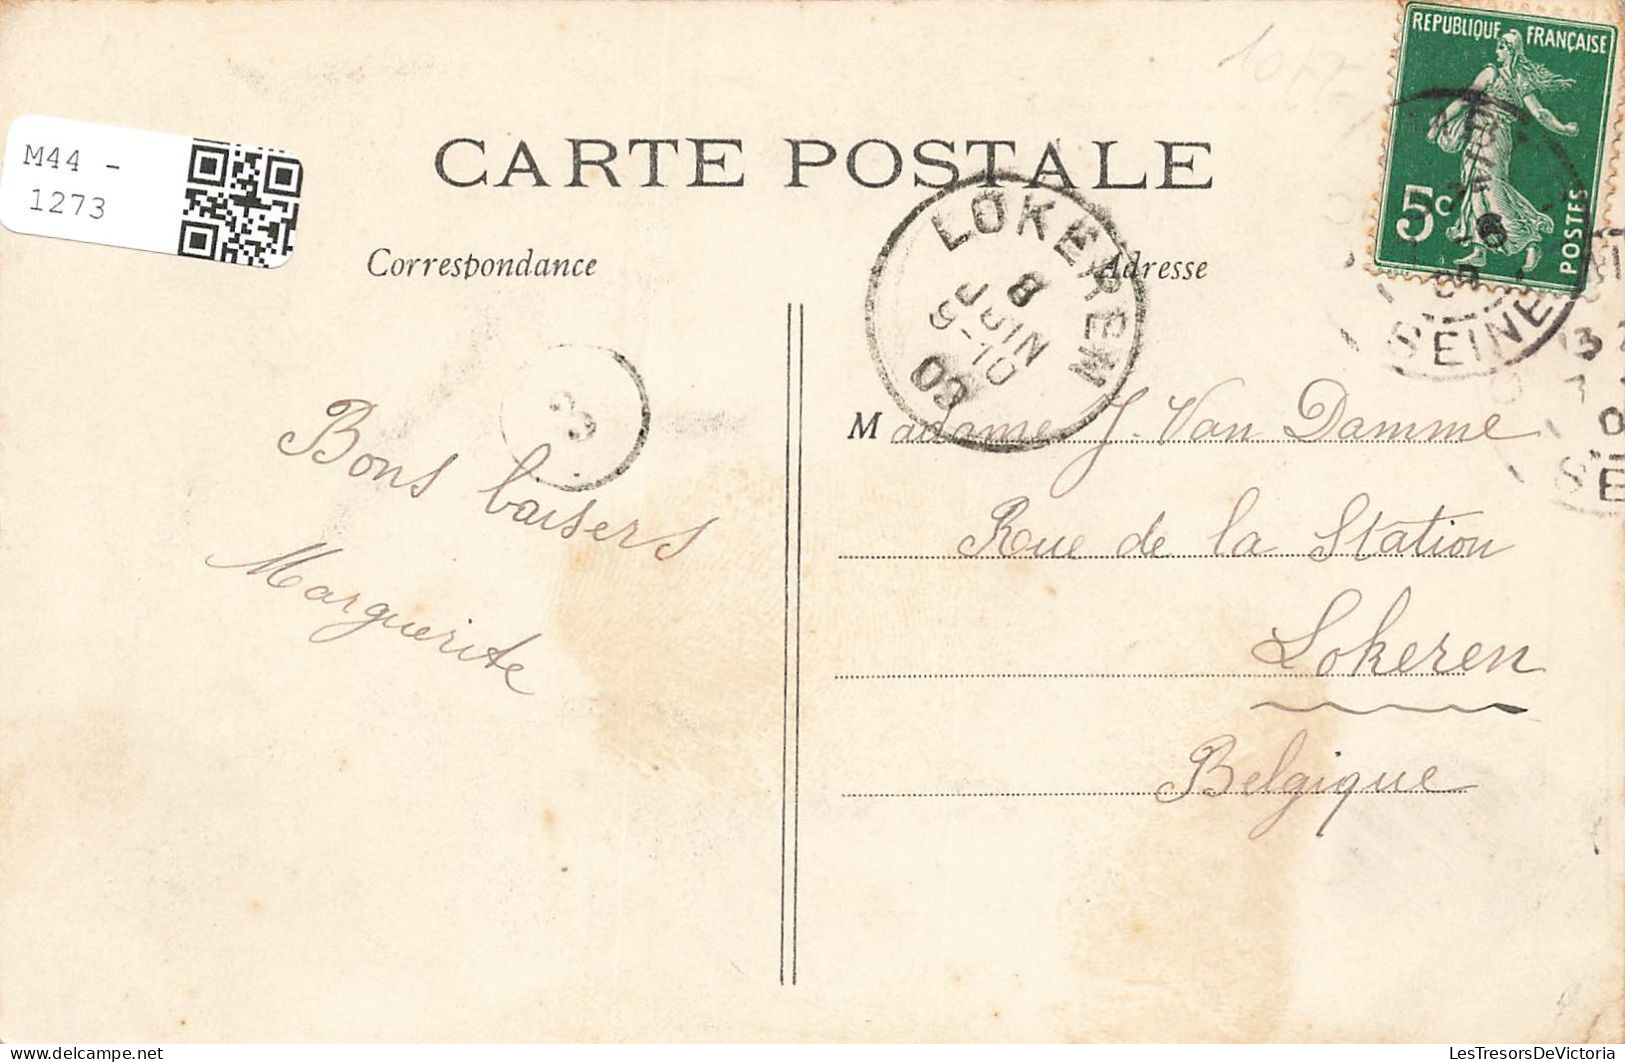 REPUBLIQUE FRANÇAISE
5c
POSTES
SEINE
M44 -
1273
CARTE POSTALE
LOKEREN
8
JUIN
9-10
09
Correspondance
Adresse
Bons baisers
Marguerite
Madame J. Van Damme
Rue de la Station
Lokeren
Belgique
LesTresorsDeVictoria